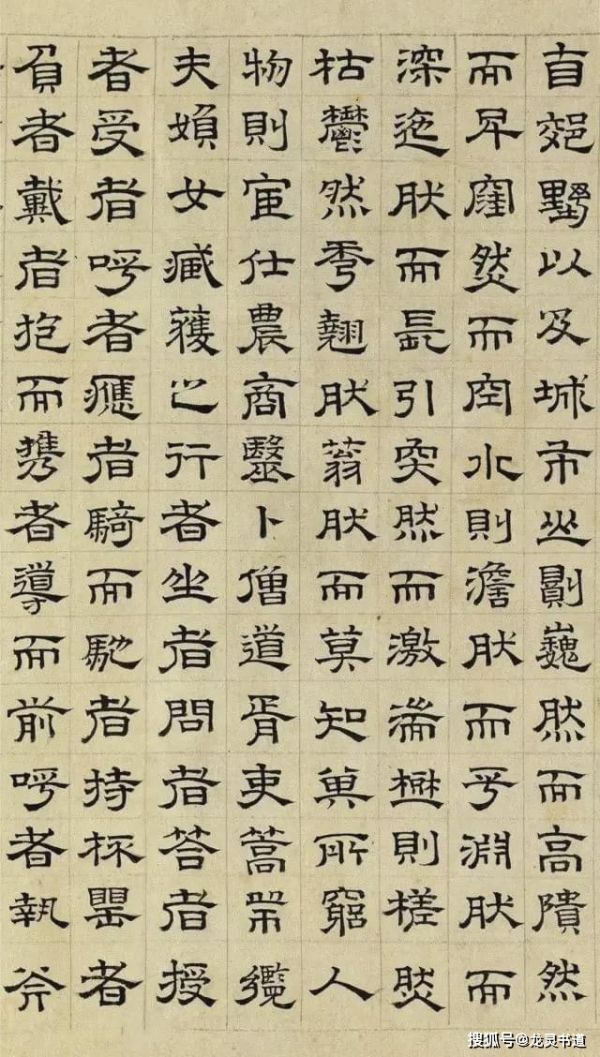 自郊野以及城市山則巍然而高隤然
而卑窪然而空水則澹然而平淵然而
深迤然而長引突然而激湍樹則槎然
枯鬱然秀翹然蓊然而莫知其所窮人
物則宦仕農商毉卜僧道胥吏篙師纜
夫婦女臧獲之行者坐者問者答者授
者受者呼者應者騎而馳者持杯罌者
負者戴者抱而携者導而前呼者執斧
搜狐号@龙灵书道